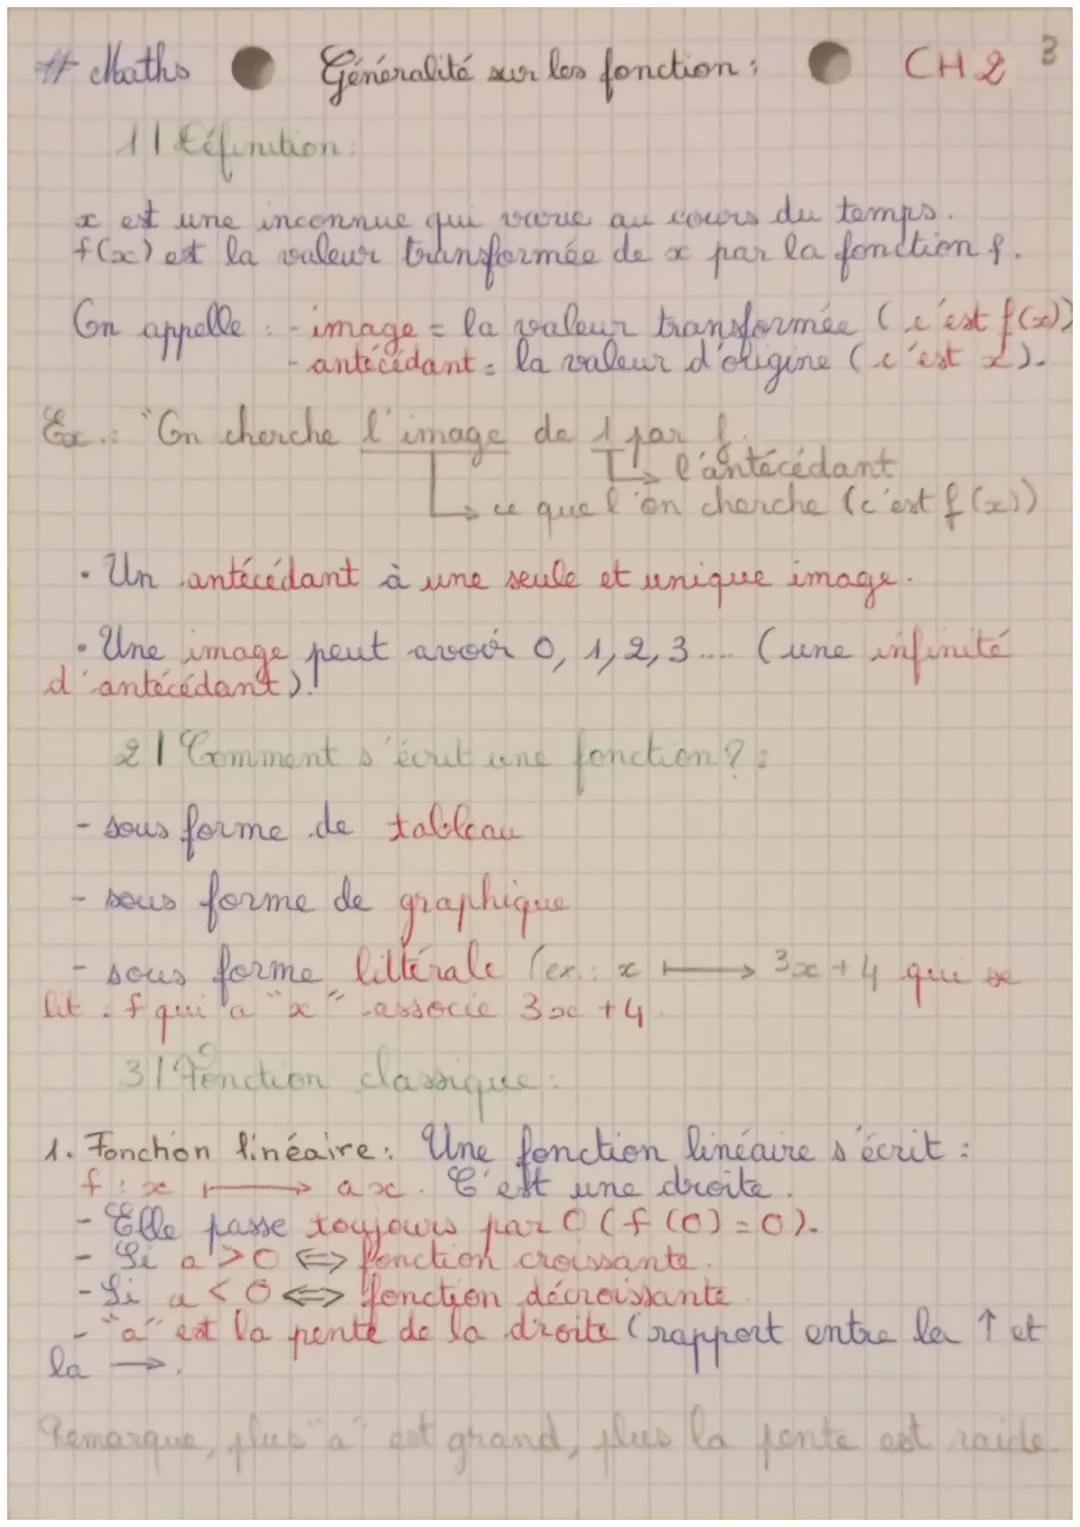 # Maths Généralité sur les fonction : CH 2 3
1 | Définition :
x est une inconnue qui varie au cours du temps.
f(x) est la valeur transformée de x par la fonction f.
On appelle : - image = la valeur transformée (c'est f(x))
- antécédant = la valeur d'origine (c'est x).
Ex.: "On cherche l'image de 1 par f.
↳ l'antécédant
↳ ce que l'on cherche (c'est f(x))
• Un antécédant à une seule et unique image.
• Une image peut avoir 0, 1, 2, 3.... (une infinité
d'antécédant).
2 | Comment s'écrit une fonction ? :
- sous forme de tableau
- sous forme de graphique
- sous forme littérale (ex.: x ⟼ 3x + 4 qui se
lit : f qui a "x" associe 3x + 4.
3 | Fonction classique :
1. Fonction linéaire : Une fonction linéaire s'écrit :
f : x ⟼ ax. C'est une droite.
- Elle passe toujours par O (f (0) = 0).
- Si a > 0 ⟺ fonction croissante.
- Si a < 0 ⟺ fonction décroissante.
- "a" est la pente de la droite (rapport entre la ↑ et
la →.
Remarque, plus "a" est grand, plus la pente est raide.